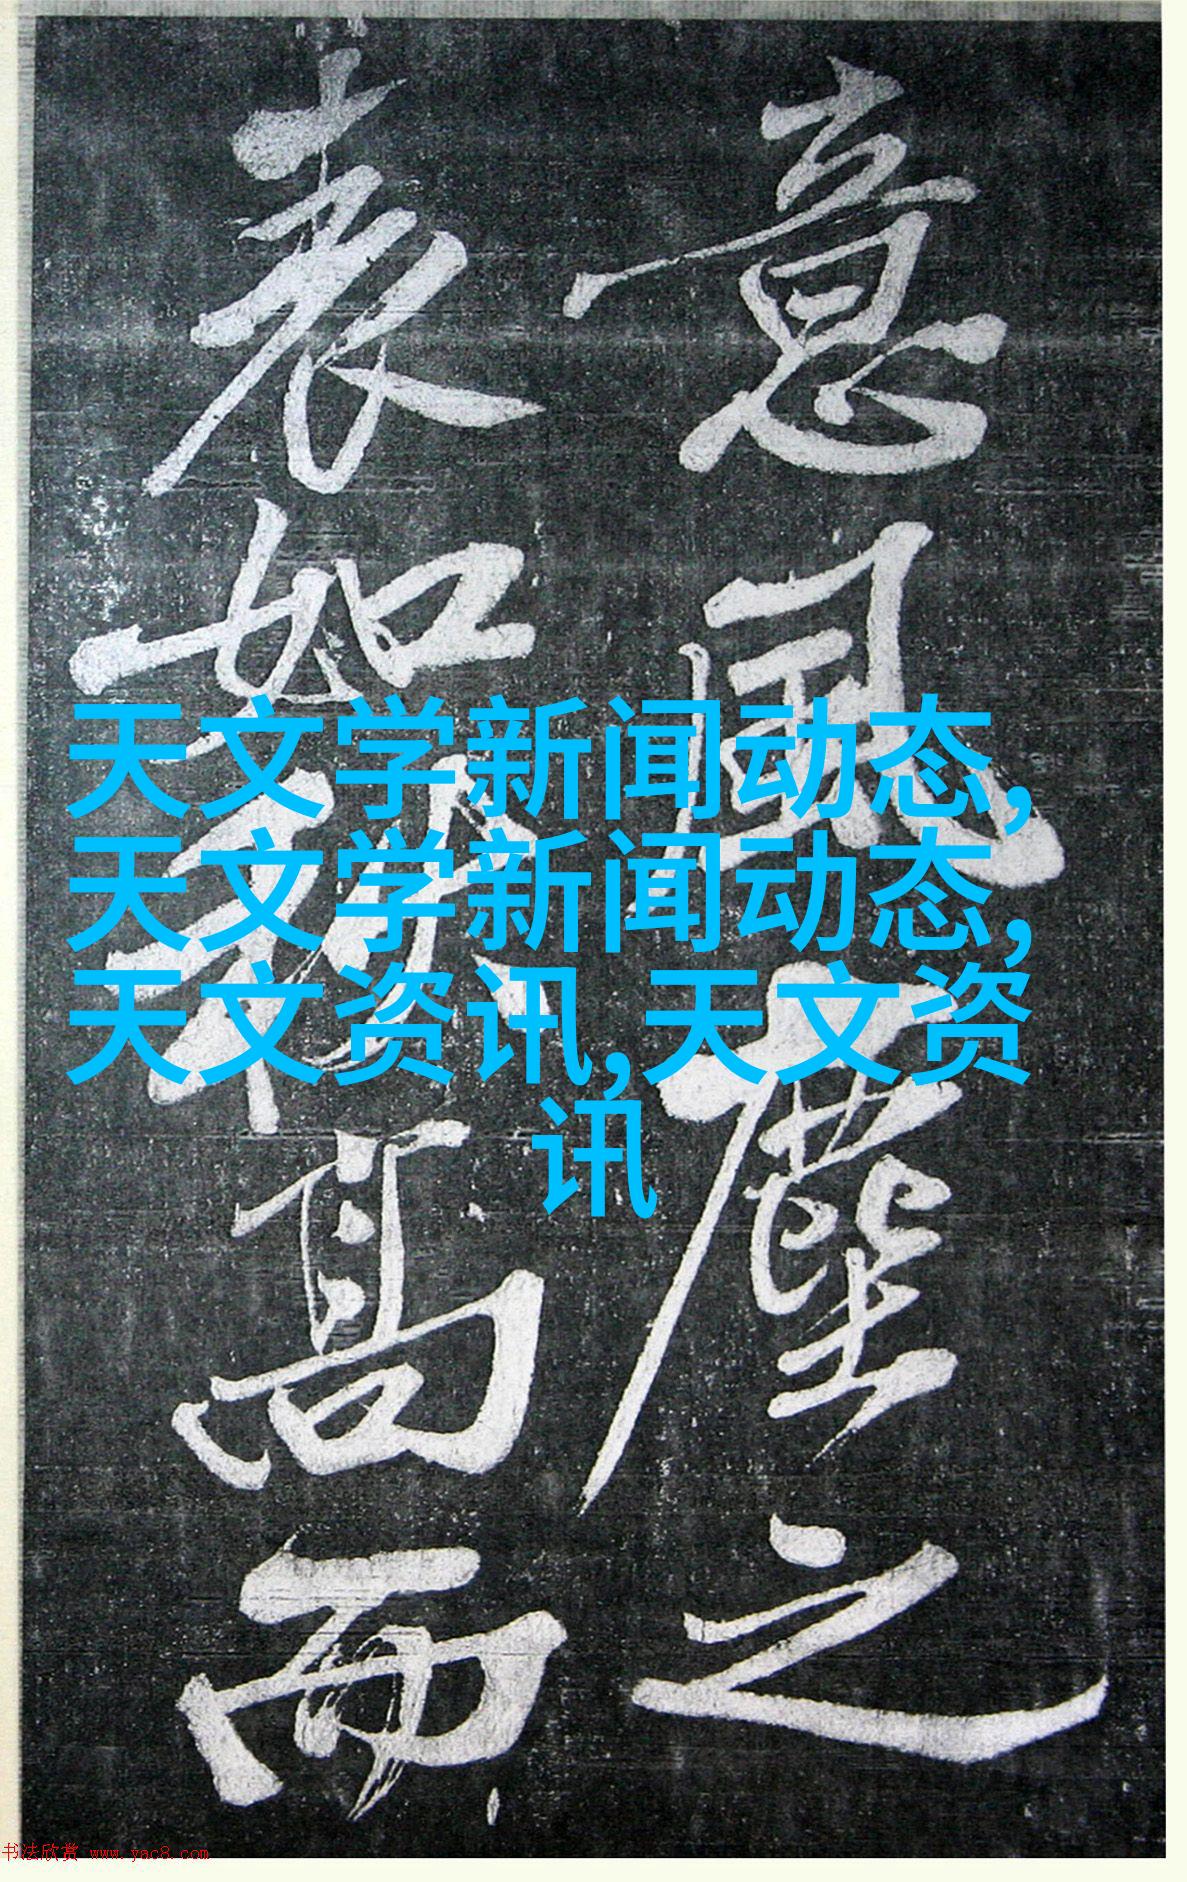 意風塵之
表如高而
天文学新闻动态,
天文学新闻动态,
天文资讯,天文资
讯
书法欣赏 www.yac8.com